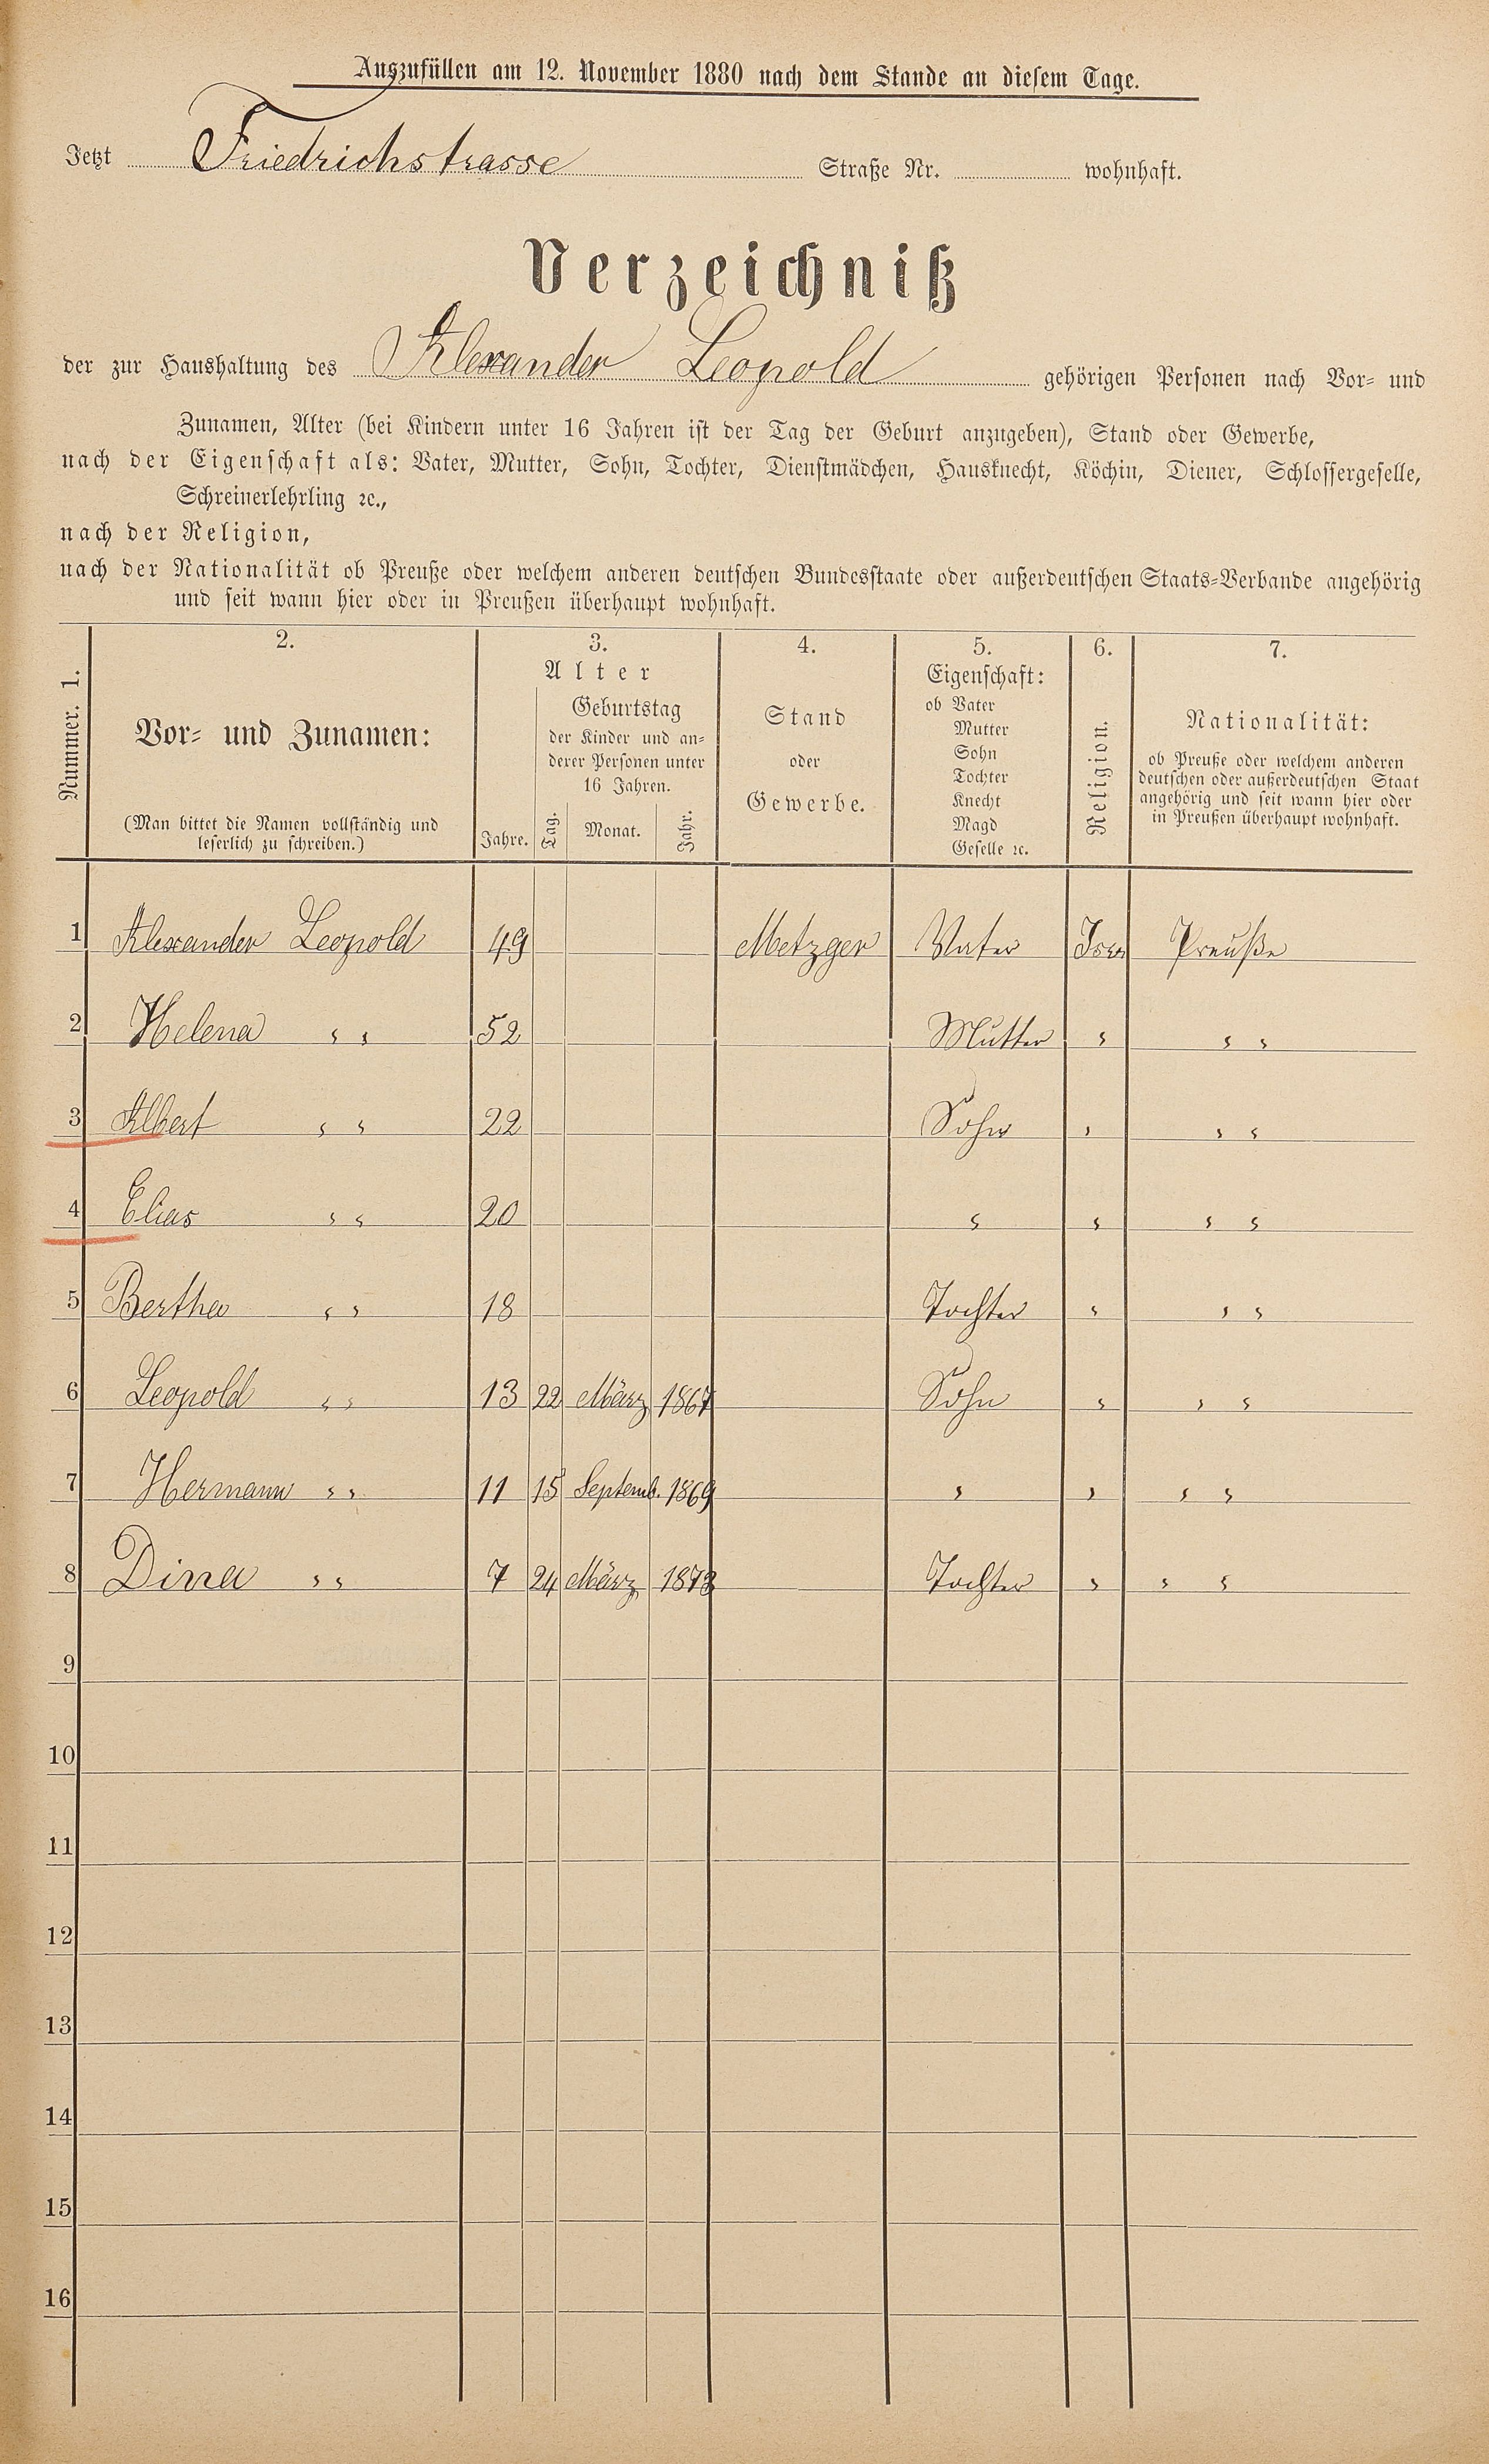 Auszufüllen am 12. November 1880 nach dem Stande an diesem Tage.
Jetzt Friedrichstrasse Straße Nr. wohnhaft.
Verzeichniß
der zur Haushaltung des Alexander Leopold gehörigen Personen nach Vor- und
Zunamen, Alter (bei Kindern unter 16 Jahren ist der Tag der Geburt anzugeben), Stand oder Gewerbe,
nach der Eigenschaft als: Vater, Mutter, Sohn, Tochter, Dienstmädchen, Hausknecht, Köchin, Diener, Schlossergeselle,
Schreinerlehrling ꝛc.,
nach der Religion,
nach der Nationalität ob Preuße oder welchem anderen deutschen Bundesstaate oder außerdeutschen Staats-Verbande angehörig
und seit wann hier oder in Preußen überhaupt wohnhaft.
Nummer. 1.
2.
Vor- und Zunamen:
(Man bittet die Namen vollständig und
leserlich zu schreiben.)
3.
Alter
Jahre.
Geburtstag
der Kinder und an-
derer Personen unter
16 Jahren.
Tag. Monat. Jahr.
4.
Stand
oder
Gewerbe.
5.
Eigenschaft:
ob Vater
Mutter
Sohn
Tochter
Knecht
Magd
Geselle ꝛc.
6.
Religion.
7.
Nationalität:
ob Preuße oder welchem anderen
deutschen oder außerdeutschen Staat
angehörig und seit wann hier oder
in Preußen überhaupt wohnhaft.
1 Alexander Leopold 49 Metzger Vater Isr. Preuße
2 Helena " " 52 Mutter " " "
3 Albert " " 22 Sohn " " "
4 Elias " " 20 " " " "
5 Bertha " " 18 Tochter " " "
6 Leopold " " 13 22 März 1867 Sohn " " "
7 Hermann " " 11 15 Septemb. 1869 " " " "
8 Dina " " 7 24 März 1873 Tochter " " "
9
10
11
12
13
14
15
16